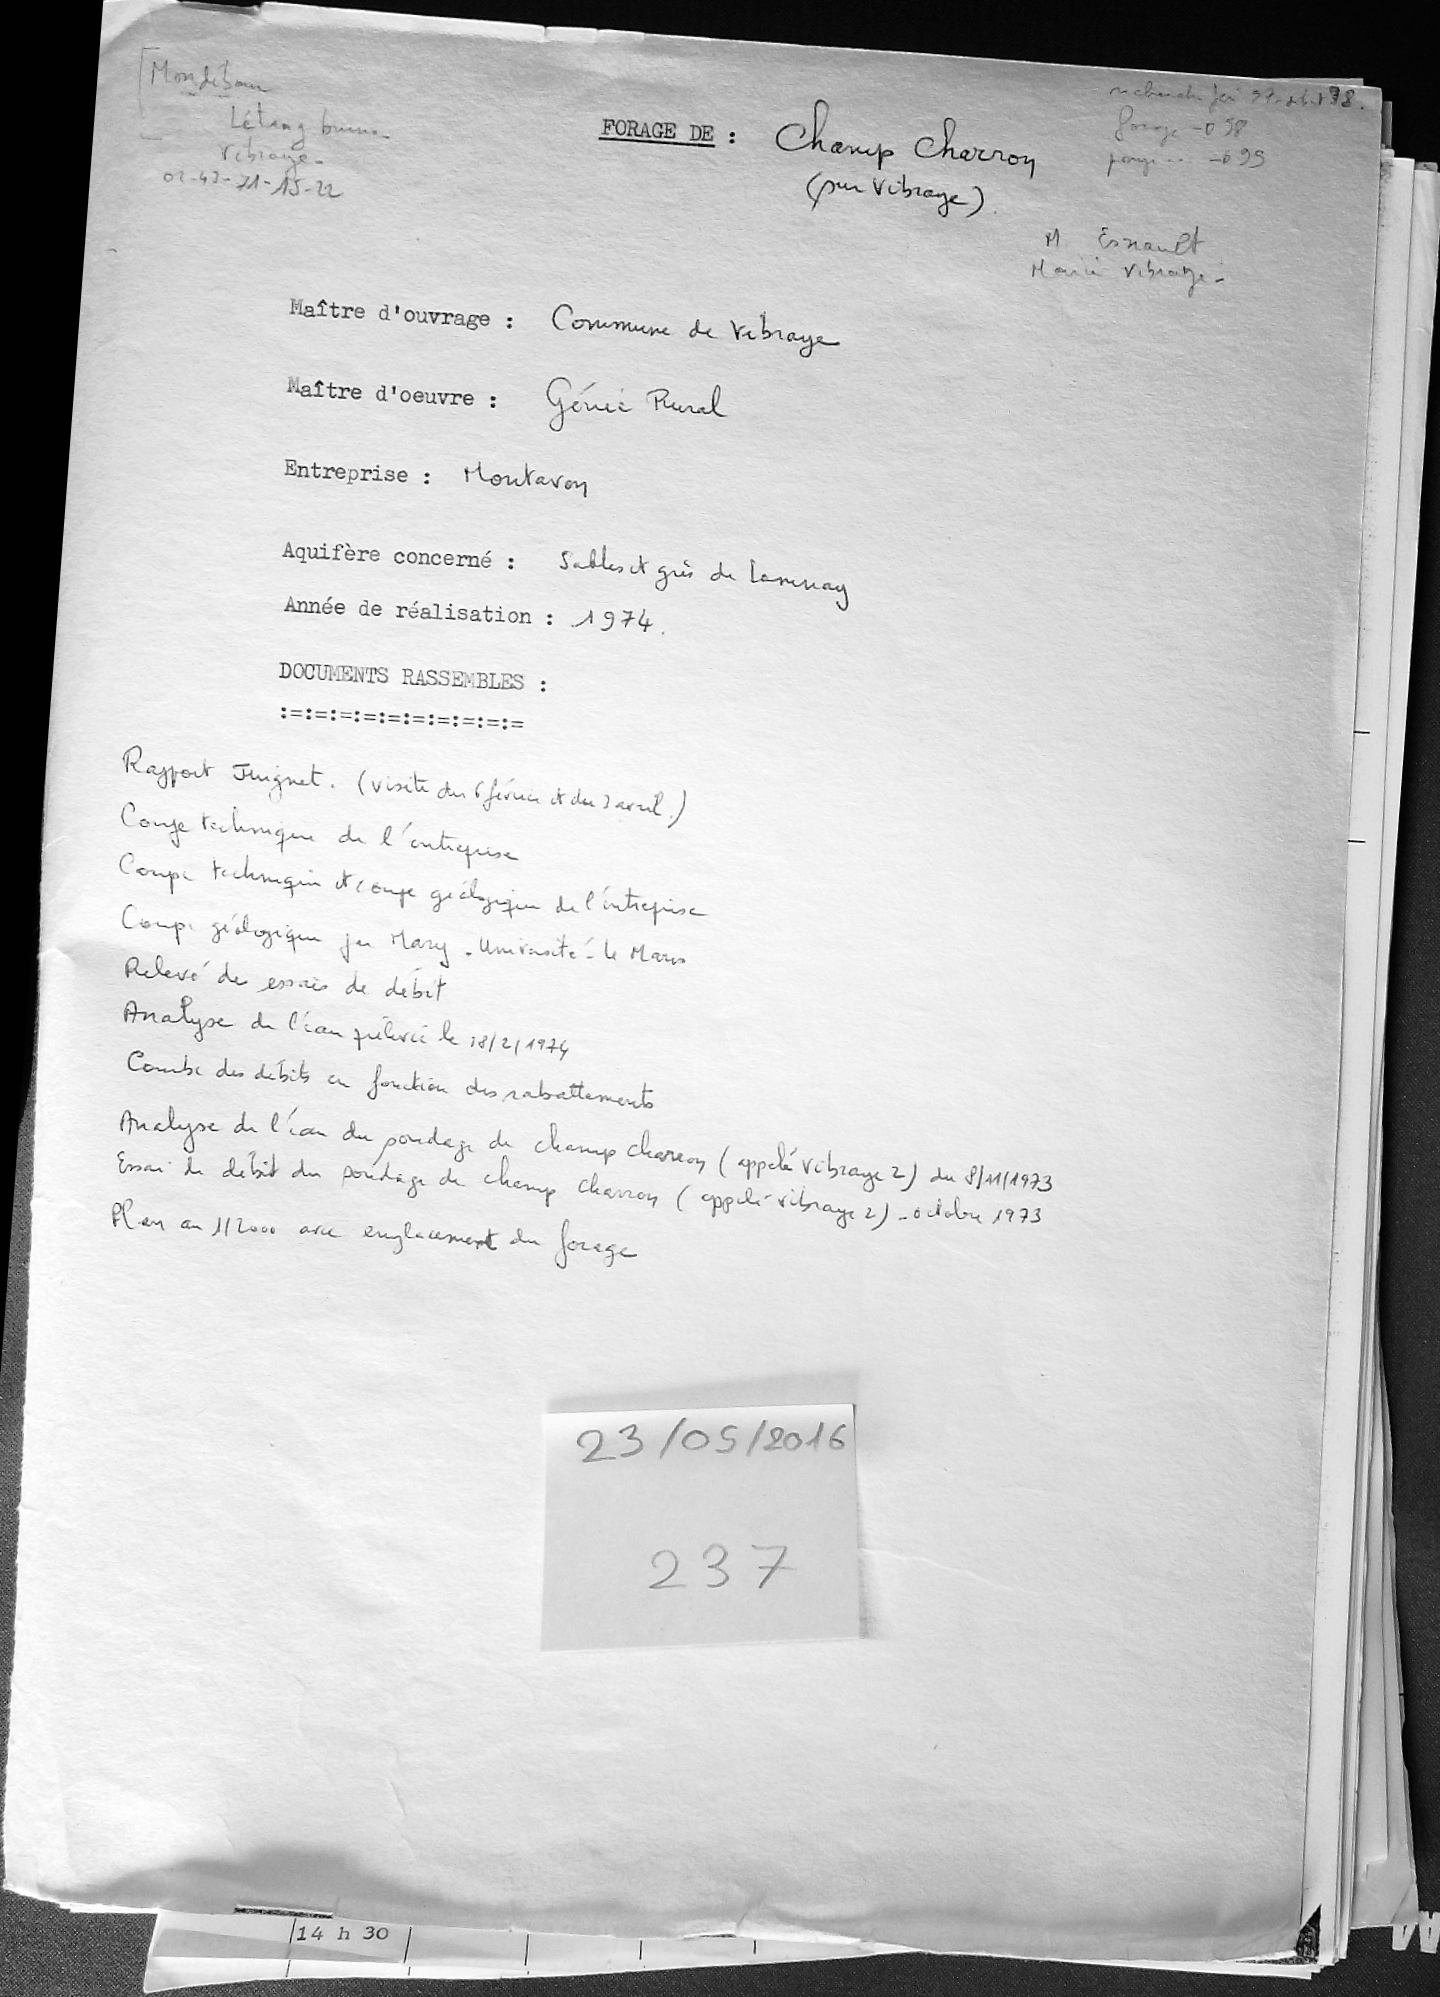 Létang
Vibraye
02-43-71-15-22
recherche fev 97 98.
forage 98
FORAGE DE : Champ Charron
(sur Vibraye)
M Esnault
Mairie Vibraye
Maître d'ouvrage : Commune de Vibraye
Maître d'oeuvre : Génie Rural
Entreprise : Montavon
Aquifère concerné : Sables et grès de Lamnay
Année de réalisation : 1974.
DOCUMENTS RASSEMBLES :
:=:=:=:=:=:=:=:=:=:=
Rapport Juignet. (visite du 6 février et du 2 avril.)
Coupe technique de l'entreprise
Coupe technique et coupe géologique de l'entreprise
Coupe géologique par Mary - Université - le Mans
Relevé des essais de débit
Analyse de l'eau prélevée le 18/2/1974
Courbe des débits en fonction des rabattements
Analyse de l'eau du sondage de champ charron (appelé Vibraye 2) du 8/11/1973
Essai de débit du sondage de champ charron (appelé Vibraye 2) - octobre 1973
Plan au 1/2000 avec emplacement du forage
23/05/2016
237
14 h 30